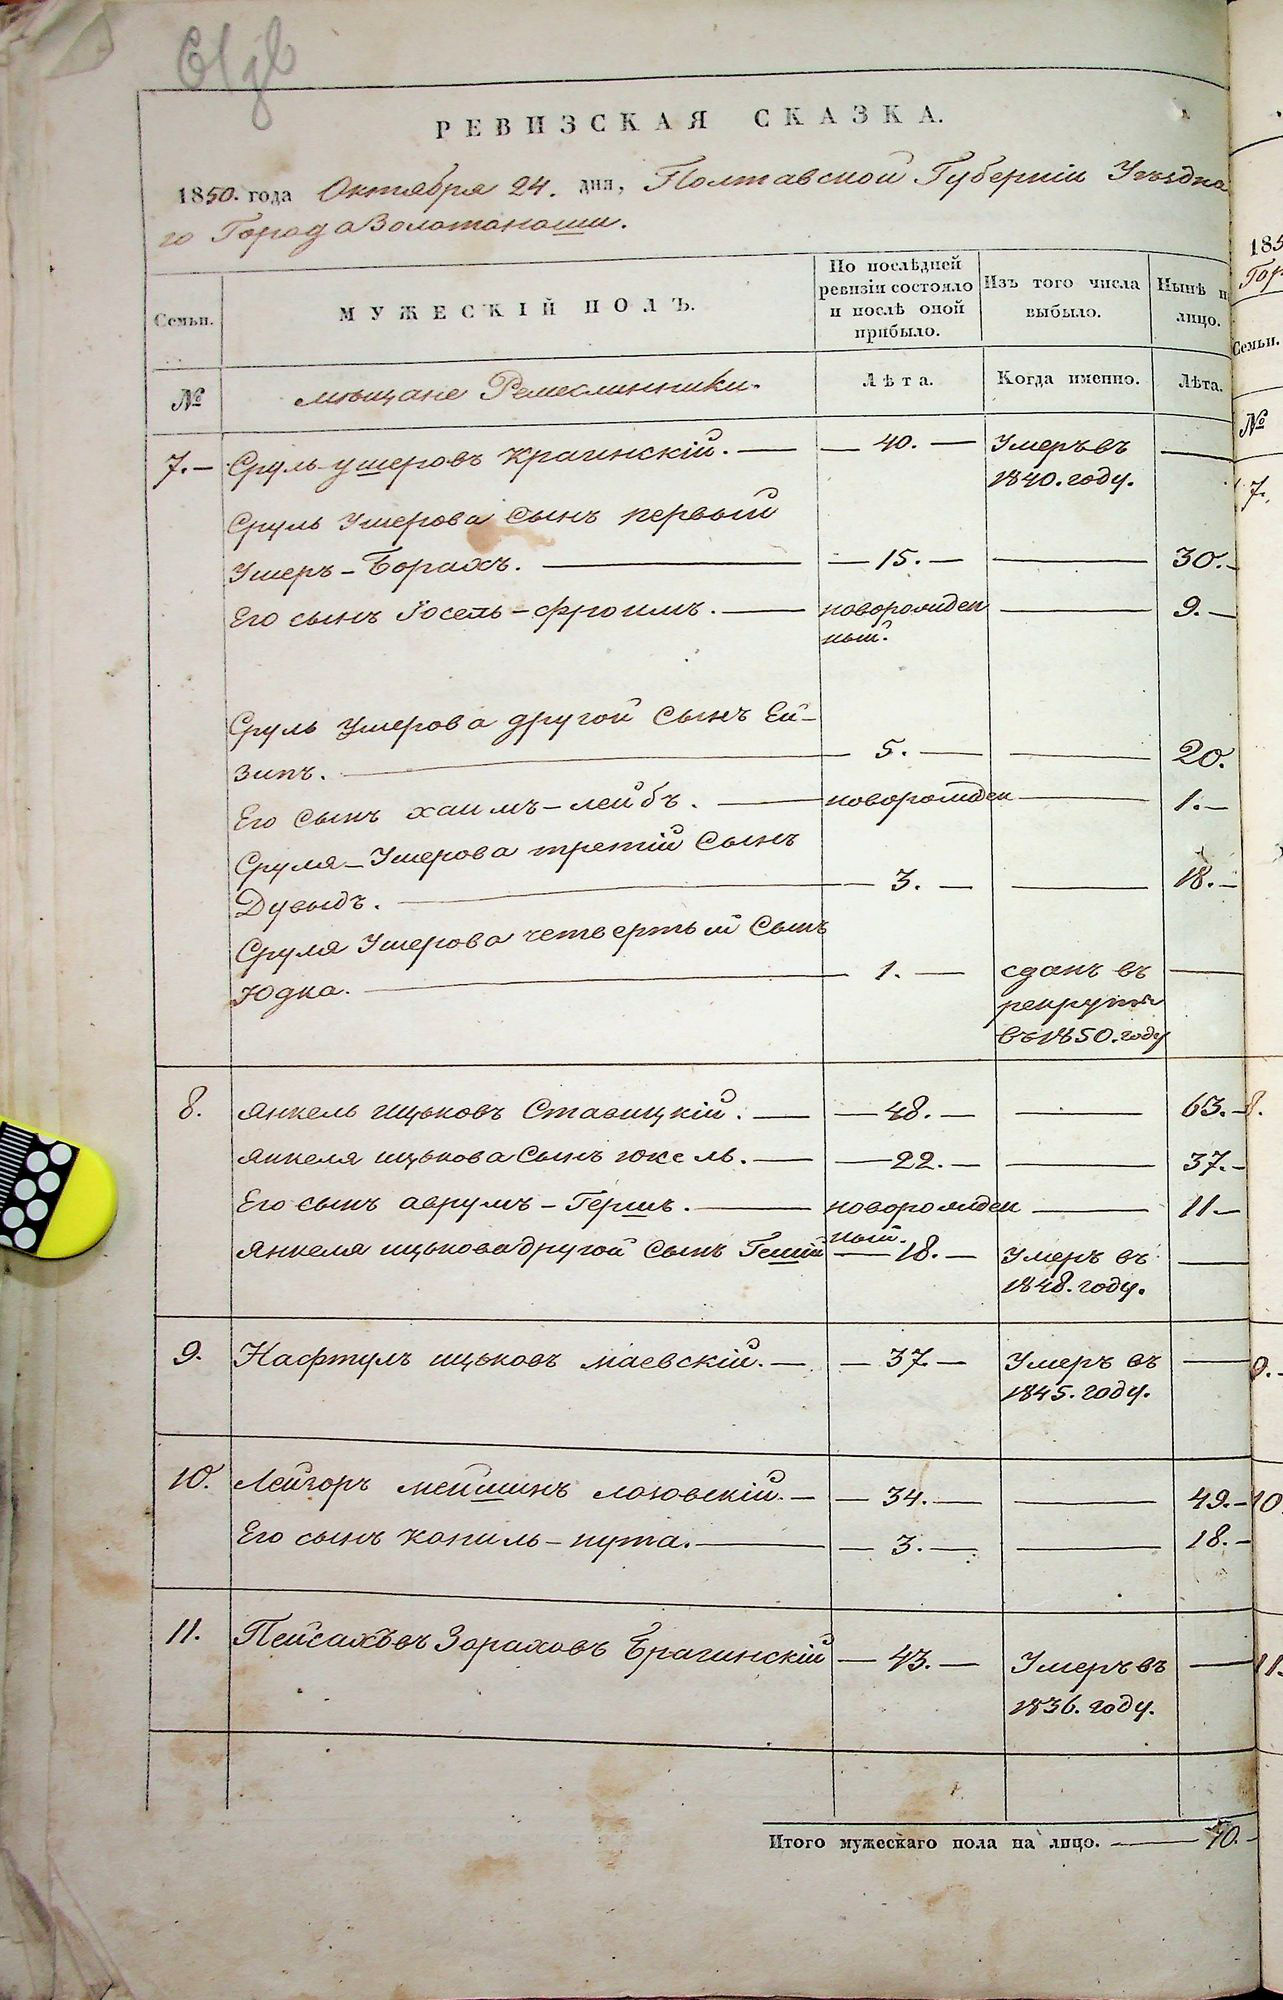 РЕВИЗСКАЯ СКАЗКА.
1850. года Октября 24. дня, Полтавской Губерніи Уѣздна
го Города Золотоноши.
Семьи.
МУЖЕСКІЙ ПОЛЪ.
По послѣдней ревизіи состояло и послѣ оной прибыло.
Изъ того числа выбыло.
Нынѣ н лицо.
№
мѣщане Ремесленники.
Лѣта.
Когда именно.
Лѣта.
7. — Сруль Ушеровъ Крагинскій. — 40. — Умеръ въ —
1840. году.
Сруль Ушерова сынъ первый
Ушеръ - Борахъ. — 15. — — 30. —
Его сынъ Іосель - Фроимъ. — новорожден — 9. —
ный.
Сруль Ушерова другой сынъ Ей-
зипъ. — 5. — — 20.
Его сынъ хаимъ - лейбъ. — новорожден — 1. —
Сруля - Ушерова третій сынъ
Дувыдъ. — 3. — — 18. —
Сруля Ушерова четвертый сынъ
Юдка. — 1. — сданъ въ —
рекруты
въ 1850. году
8. Янкель ицьковъ Ставицкій. — 48. — — 63. —
Янкеля ицькова сынъ юкель. — 22. — — 37. —
Его сынъ аврумъ - Гершъ. — новорожден — 11 —
ный.
Янкеля ицькова другой сынъ — 18. — Умеръ въ —
1848. году.
9. Нафтулъ ицьковъ маевскій. — 37 — Умеръ въ —
1845. году.
10. Лейзоръ мейшинъ лозовскій. — 34. — — 49. —
Его сынъ копиль - пута. — 3. — — 18. —
11. Пейсахъ Зораховъ Брагинскій — 43. — Умеръ въ —
1836. году.
Итого мужескаго пола на лицо. — 10. —
185
Гор
Семьи.
№
7.
8.
9. —
10
11.